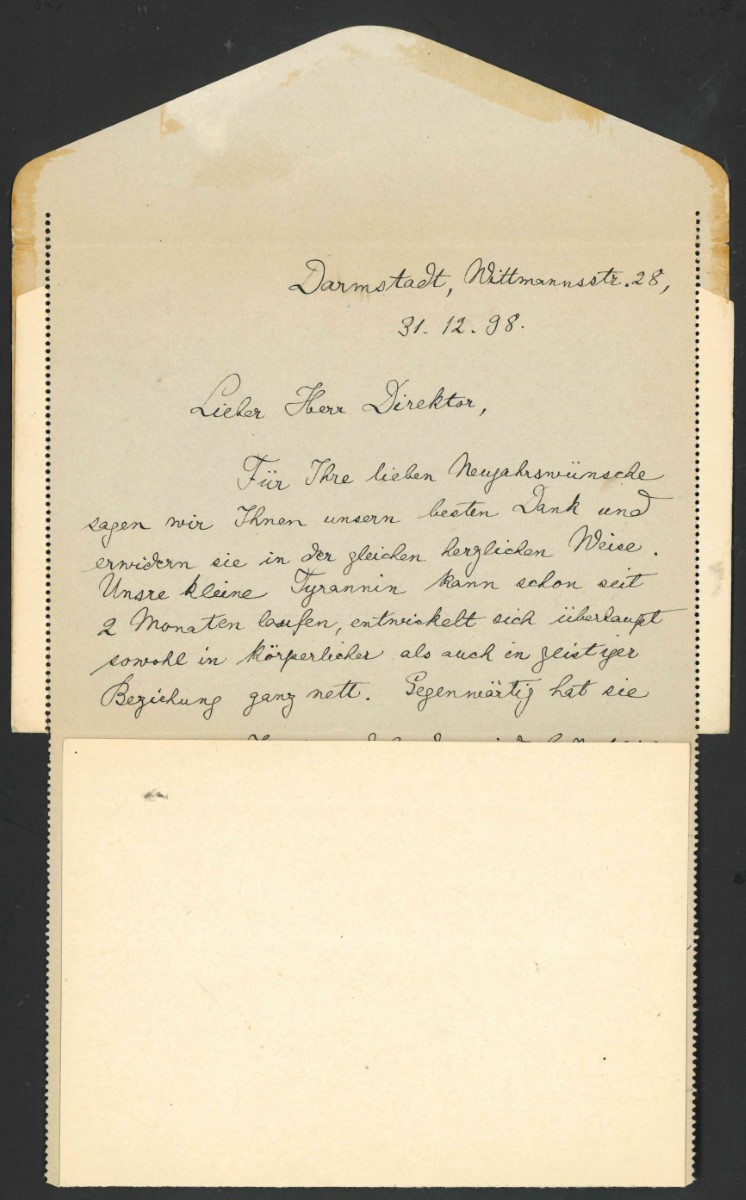 Darmstadt, Wittmannsstr. 28,
31. 12. 98.
Lieber Herr Direktor,
Für Ihre lieben Neujahrswünsche
sagen wir Ihnen unsern besten Dank und
erwidern sie in der gleichen herzlichen Weise.
Unsre kleine Tyrannin kann schon seit
2 Monaten laufen, entwickelt sich überhaupt
sowohl in körperlicher als auch in geistiger
Beziehung ganz nett. Gegenwärtig hat sie